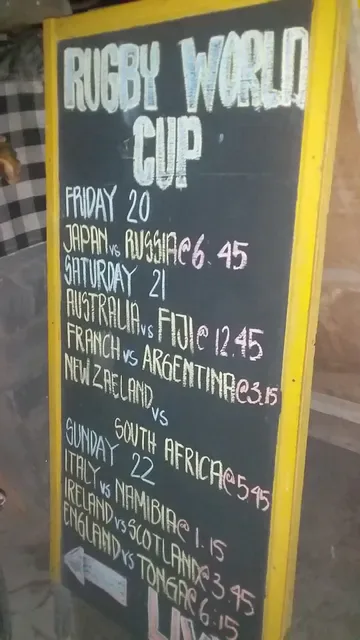 RUGBY WORLD
CUP
FRIDAY 20
JAPAN vs RUSSIA@6.45
SATURDAY 21
AUSTRALIA vs FIJI@12.45
FRANCH vs ARGENTINA@3.15
NEWZAELAND vs
SOUTH AFRICA@545
SUNDAY 22
ITALY vs NAMIBIA@1.15
IRELAND vs SCOTLAND@3.45
ENGLAND vs TONGA@6:15